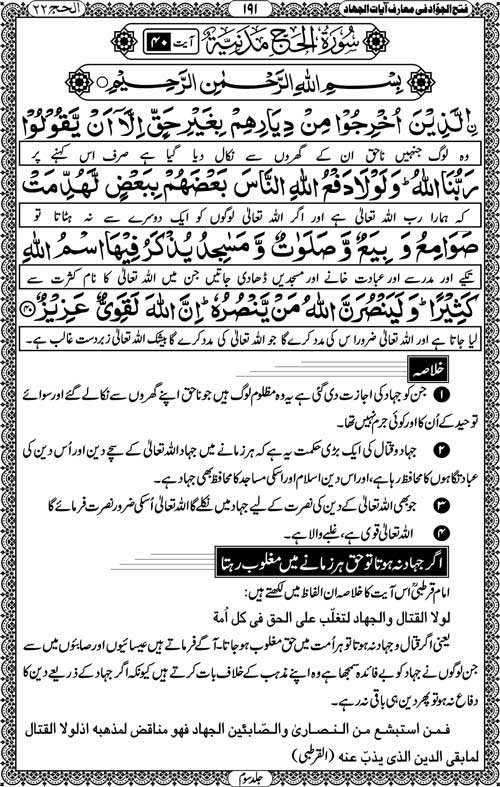 فتح الجوّاد فی معارف آیات الجهاد
۱۹۱
الحج ۲۲
سُوْرَةُ الْحَجِّ مَدَنِيَّةٌ آیت ۴۰
بِسْمِ اللهِ الرَّحْمٰنِ الرَّحِيْمِ
اِۨلَّذِيْنَ اُخْرِجُوْا مِنْ دِيَارِهِمْ بِغَيْرِ حَقٍّ اِلَّاۤ اَنْ يَّقُوْلُوْا
وہ لوگ جنہیں ناحق ان کے گھروں سے نکال دیا گیا ہے صرف اس کہنے پر
رَبُّنَا اللهُ ؕ وَلَوْلَا دَفْعُ اللهِ النَّاسَ بَعْضَهُمْ بِبَعْضٍ لَّهُدِّمَتْ
کہ ہمارا رب اللہ تعالیٰ ہے اور اگر اللہ تعالیٰ لوگوں کو ایک دوسرے سے نہ ہٹاتا تو
صَوَامِعُ وَ بِيَعٌ وَّ صَلَوٰتٌ وَّ مَسٰجِدُ يُذْكَرُ فِيْهَا اسْمُ اللهِ
تکیے اور مدرسے اور عبادت خانے اور مسجدیں ڈھا دی جاتیں جن میں اللہ تعالیٰ کا نام کثرت سے
كَثِيْرًا ؕ وَلَيَنْصُرَنَّ اللهُ مَنْ يَّنْصُرُهٗ ؕ اِنَّ اللهَ لَقَوِيٌّ عَزِيْزٌ ۴۰
لیا جاتا ہے اور اللہ تعالیٰ ضرور اس کی مدد کرے گا جو اللہ تعالیٰ کی مدد کرے گا بیشک اللہ تعالیٰ زبردست غالب ہے۔
خلاصہ
۱ جن کو جہاد کی اجازت دی گئی ہے یہ وہ مظلوم لوگ ہیں جو ناحق اپنے گھروں سے نکالے گئے اور سوائے
توحید کے اُن کا اور کوئی جرم نہیں تھا۔
۲ جہاد و قتال کی ایک بڑی حکمت یہ ہے کہ ہر زمانے میں جہاد اللہ تعالیٰ کے سچے دین اور اُس دین کی
عبادتگاہوں کا محافظ رہا ہے، اور اس دین اسلام اور اسکی مساجد کا محافظ بھی جہاد ہے۔
۳ جو بھی اللہ تعالیٰ کے دین کی نصرت کے لیے جہاد میں نکلے گا اللہ تعالیٰ اُسکی ضرور نصرت فرمائے گا
۴ اللہ تعالیٰ قوی ہے، غلبے والا ہے۔
اگر جہاد نہ ہوتا تو حق ہر زمانے میں مغلوب رہتا
امام قرطبیؒ اس آیت کا خلاصہ ان الفاظ میں لکھتے ہیں:
لولا القتال والجهاد لتغلّب على الحق فى كل أمة
یعنی اگر قتال و جہاد نہ ہوتا تو ہر اُمت میں حق مغلوب ہو جاتا۔ آگے فرماتے ہیں عیسائیوں اور صابئوں میں سے
جن لوگوں نے جہاد کو بے فائدہ سمجھا ہے وہ اپنے مذہب کے خلاف بات کرتے ہیں کیونکہ اگر جہاد کے ذریعے دین کا
دفاع نہ ہو تو پھر دین ہی باقی نہ رہے۔
فمن استبشع من النصارىٰ والصّابئين الجهاد فهو مناقض لمذهبه اذلولا القتال
لمابقى الدين الذى يذبّ عنه (القرطبى)
جلد سوم